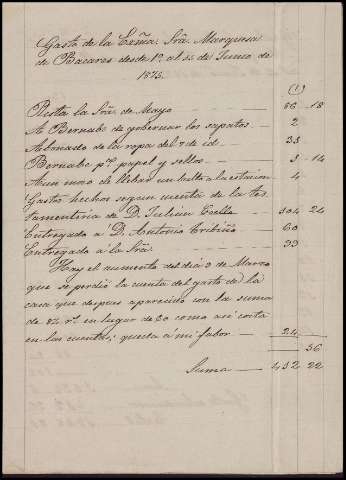 Gasto de la Exma. Sra. Marquesa
de Bacares desde 1º al 30 de Junio de
1875.
(1)
Resta la Sra. de Mayo 86 18
A Bernabe de gobernar los sapatos 2
Abonado de la ropa del 7 de id. 35
Bernabe pr. papel y sellos 5 14
A un mozo de llebar un bulto a la estacion 4
Gastos hechos segun cuenta de la tes
tamenteria de D. Julian 504 24
Entregado á D. Antonio 60
Entregado á la Sra. 99
Hay el aumento del dia 9 de Marzo
que se perdió la cuenta del gasto de la
casa que despues aparecido con la suma
de 84 rs. en lugar de 60 como asi costa
en las cuentas; queda á mi fabor 24
56
Suma 432 22